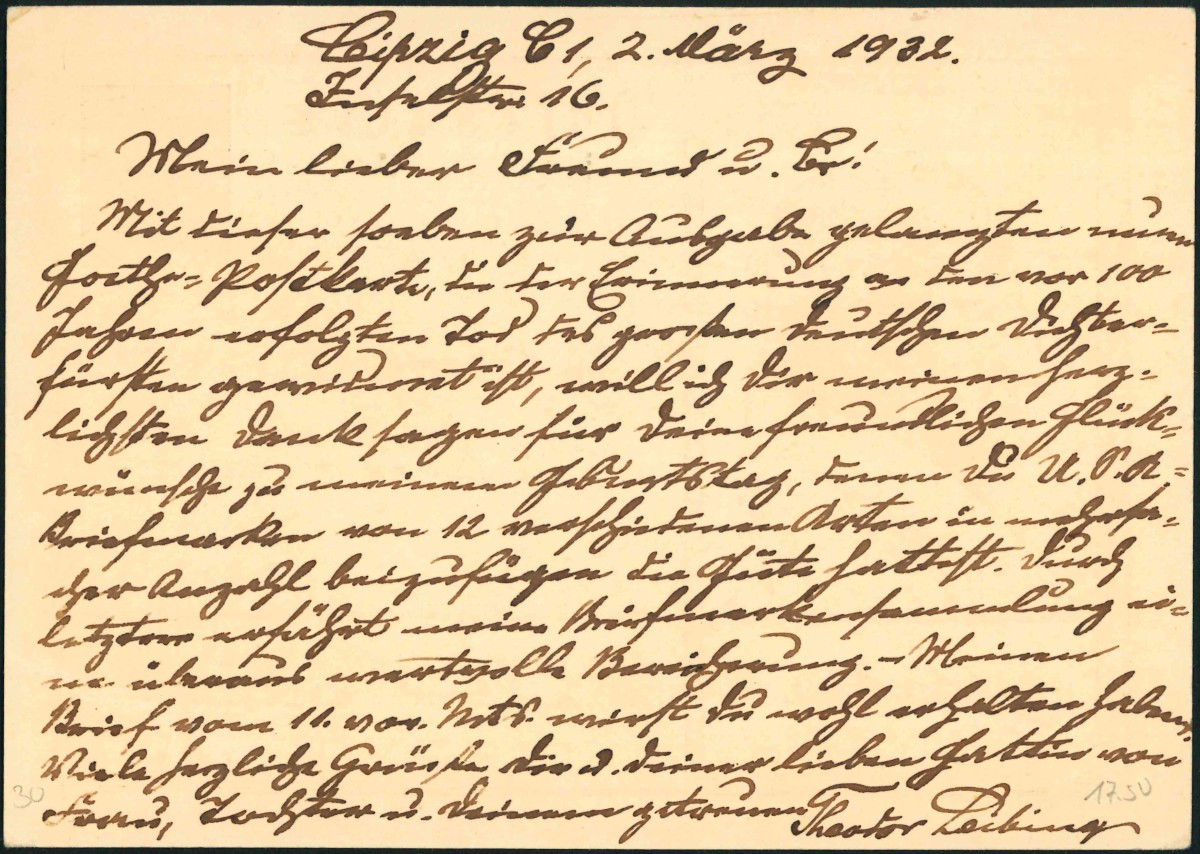 Leipzig C 1, 2. März 1932.
Inselstr. 16.
Mein lieber Freund u. Br.!
Mit dieser soeben zur Ausgabe gelangten neuen
Goethe-Postkarte, die der Erinnerung an den vor 100
Jahren erfolgten Tod des grossen deutschen Dichter-
fürsten gewidmet ist, will ich Dir meinen herz-
lichsten Dank sagen für Deine freundlichen Glück-
wünsche zu meinem Geburtstag, denen Du U.S.A.-
Briefmarken von 12 verschiedenen Arten in mehrfa-
cher Anzahl beizufügen die Güte hattest. Durch
letztere erfährt meine Briefmarkensammlung ei-
ne überaus wertvolle Bereicherung. - Meinen
Brief vom 11. vor. Mts. wirst Du wohl erhalten haben.
Viele herzliche Grüsse Dir u. Deiner lieben Gattin von
Frau, Tochter u. Deinem getreuen Theodor Leibing
30
17.50